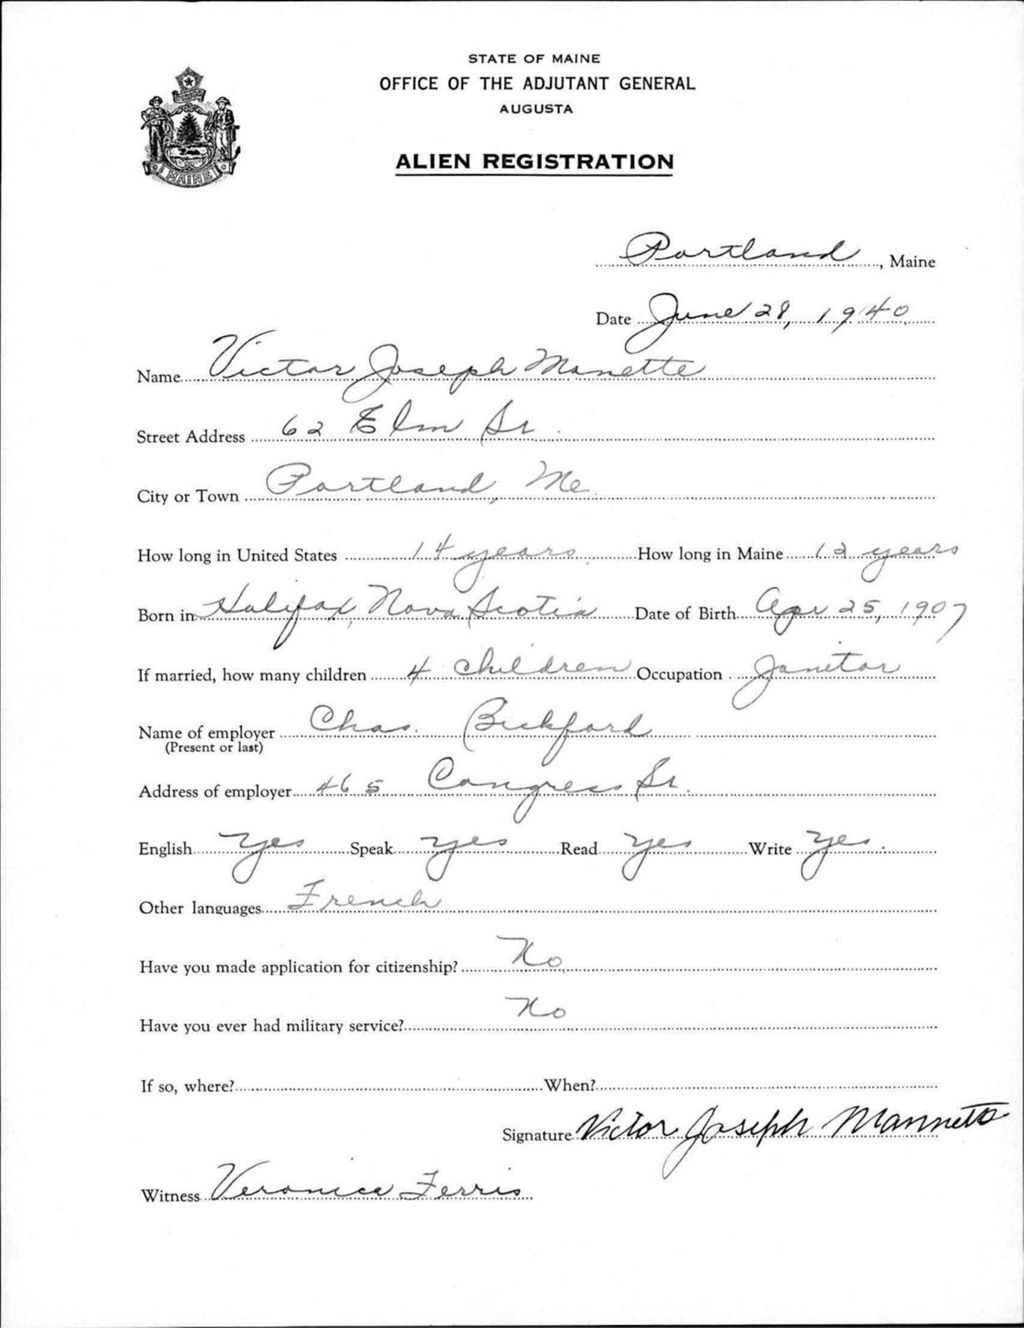 STATE OF MAINE
OFFICE OF THE ADJUTANT GENERAL
AUGUSTA
ALIEN REGISTRATION
MAINE
Portland, Maine
Date June 28, 1940
Name Victor Joseph Manette
Street Address 62 Elm St.
City or Town Portland, Me.
How long in United States 14 years How long in Maine 12 years
Born in Halifax, Nova Scotia Date of Birth Apr 25, 1907
If married, how many children 4 children Occupation Janitor
Name of employer Chas. Bickford
(Present or last)
Address of employer 465 Congress St.
English Yes Speak Yes Read Yes Write Yes
Other languages French
Have you made application for citizenship? No
Have you ever had military service? No
If so, where? When?
Signature Victor Joseph Mannette
Witness Veronica Ferris